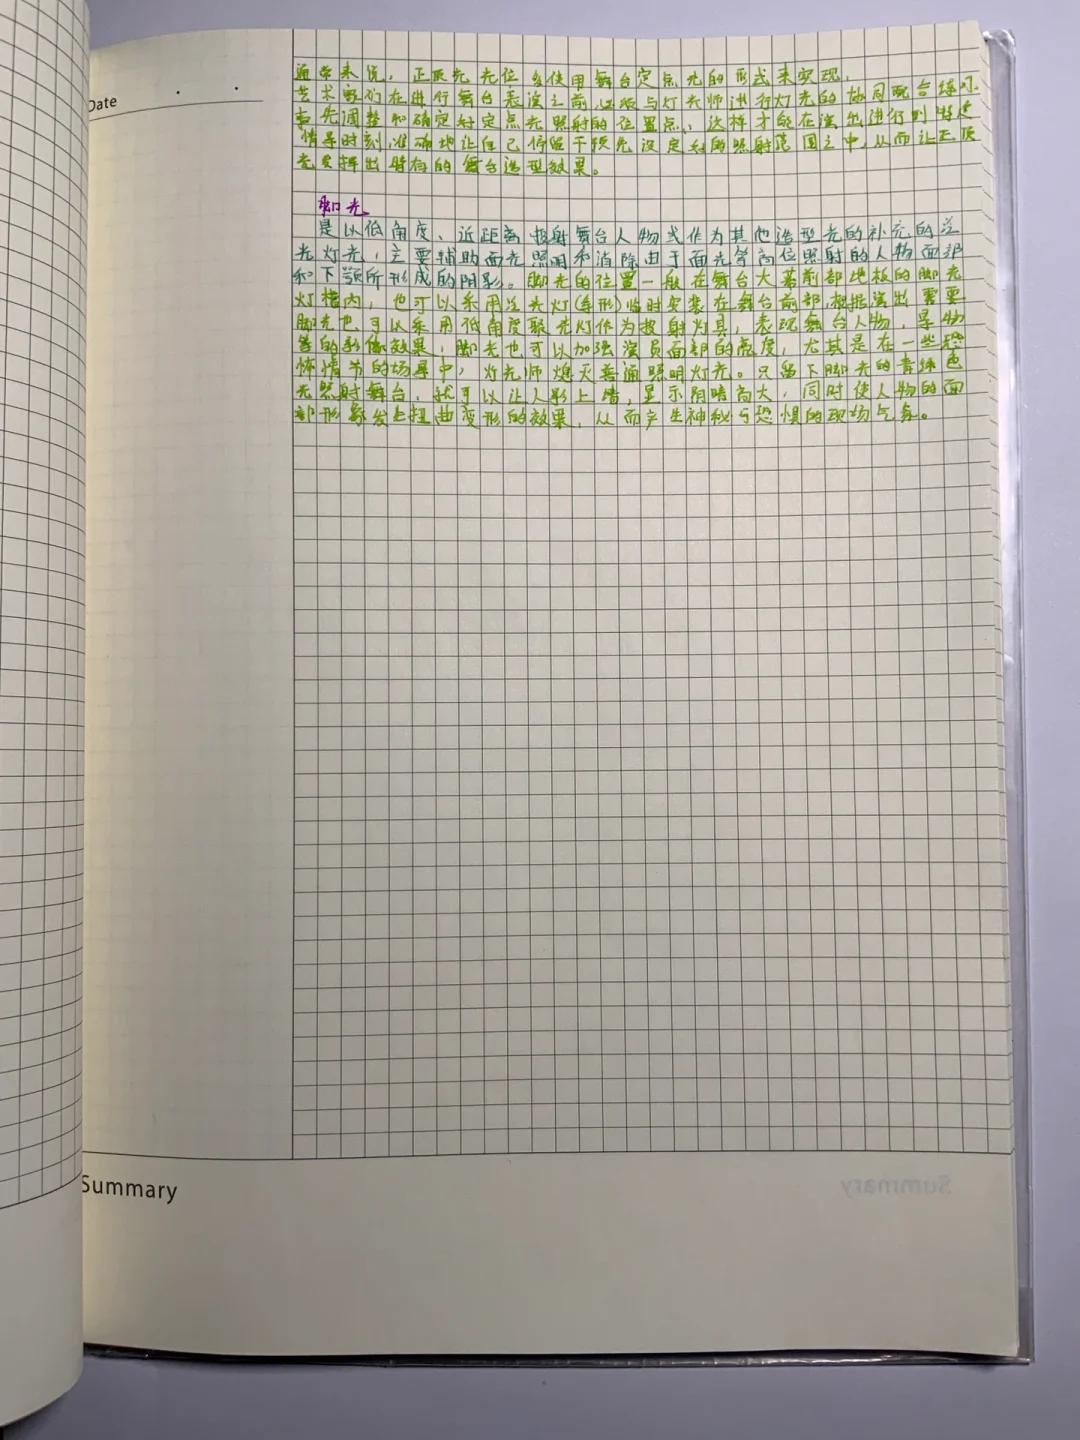 Date
通常来说，正顶光光位多使用舞台定点光的形式来实现，
艺术家们在进行舞台表演之前必须与灯光师进行灯光的协同配合练习，
事先调整和确定好定点光照射的位置点，这样才能在演出进行到特定
情景时刻，准确地让自己停留于预先设定好的照射范围之中，从而让正顶
光发挥出特有的舞台造型效果。
脚光
是以低角度、近距离投射舞台人物或作为其他造型光的补充的泛
光灯光，主要辅助面光照明和消除由于面光等高位照射的人物面部
和下颚所形成的阴影。脚光的位置一般在舞台大幕前部地板的脚光
灯槽内，也可以采用泛光灯(条形)临时安装在舞台前部，根据演出需要
脚光也可以采用低角度聚光灯作为投射灯具，表现舞台人物，景物
等的影像效果，脚光也可以加强演员面部的亮度，尤其是在一些恐
怖情节的场景中，灯光师熄灭普通照明灯光。只留下脚光的青绿色
光照射舞台，就可以让人影上墙，显示阴暗高大，同时使人物的面
部形象发生扭曲变形的效果，从而产生神秘与恐惧的现场气氛。
Summary